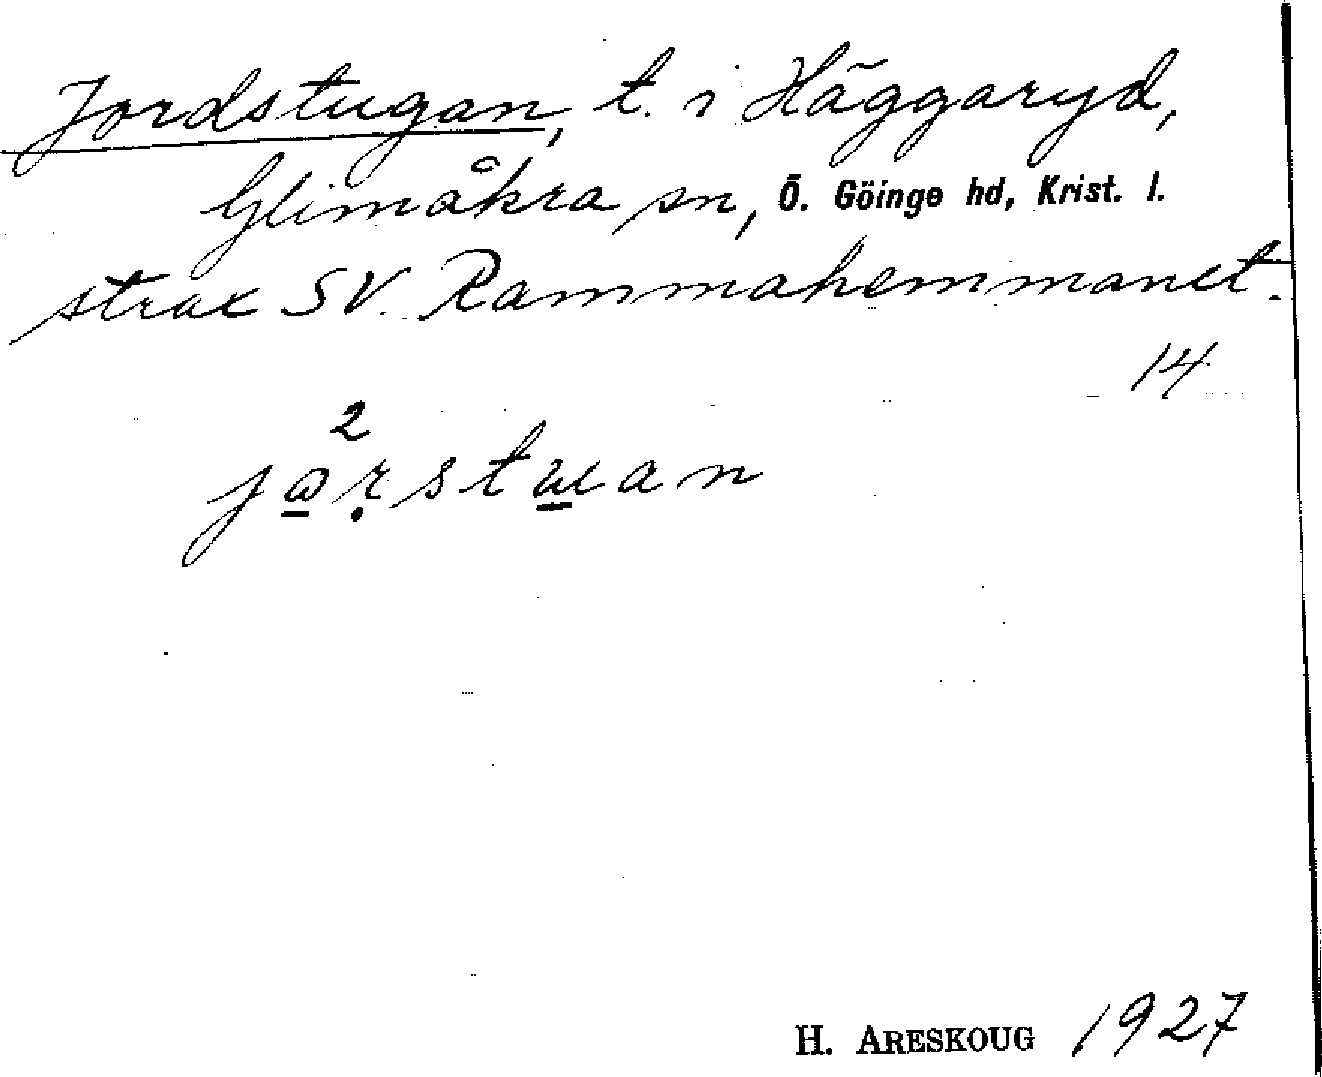 Jordstugan, t. i Häggaryd,
Glimåkra sn, Ö. Göinge hd, Krist. l.
strax SV. Rammahemmanet.
14
2
ja̲ṛstu̲an
H. ARESKOUG 1927